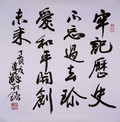 牢記歷史
不忘過去珍
愛和平開創
未来